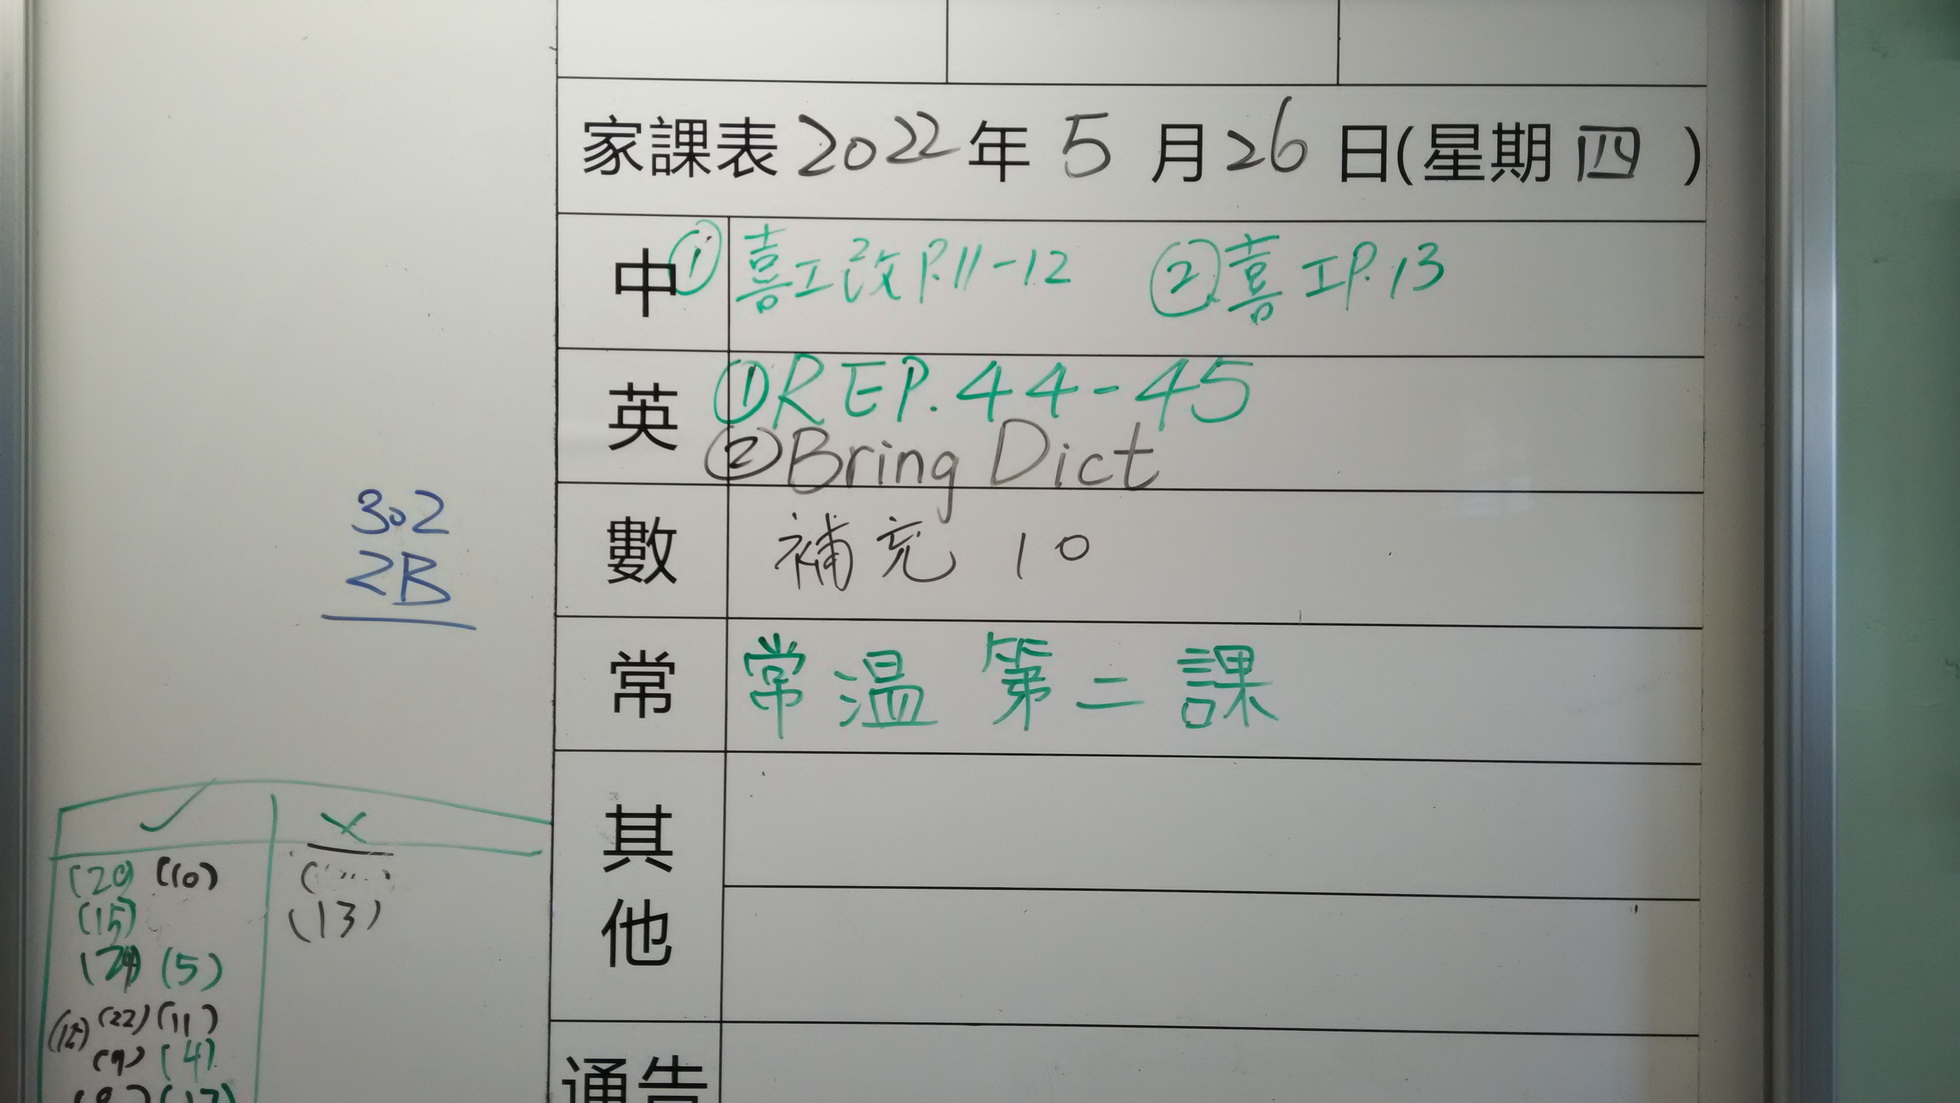 家課表 2022 年 5 月 26 日(星期 四 )
中 ① 喜工改 P.11-12 ② 喜工P.13
英 ① REP.44-45
② Bring Dict
數 補充 10
常 常温 第二課
其他
通告
302
2B
✓ ✗
(20) (10)
(15) (13)
(5)
(22) (11)
(9) (4)